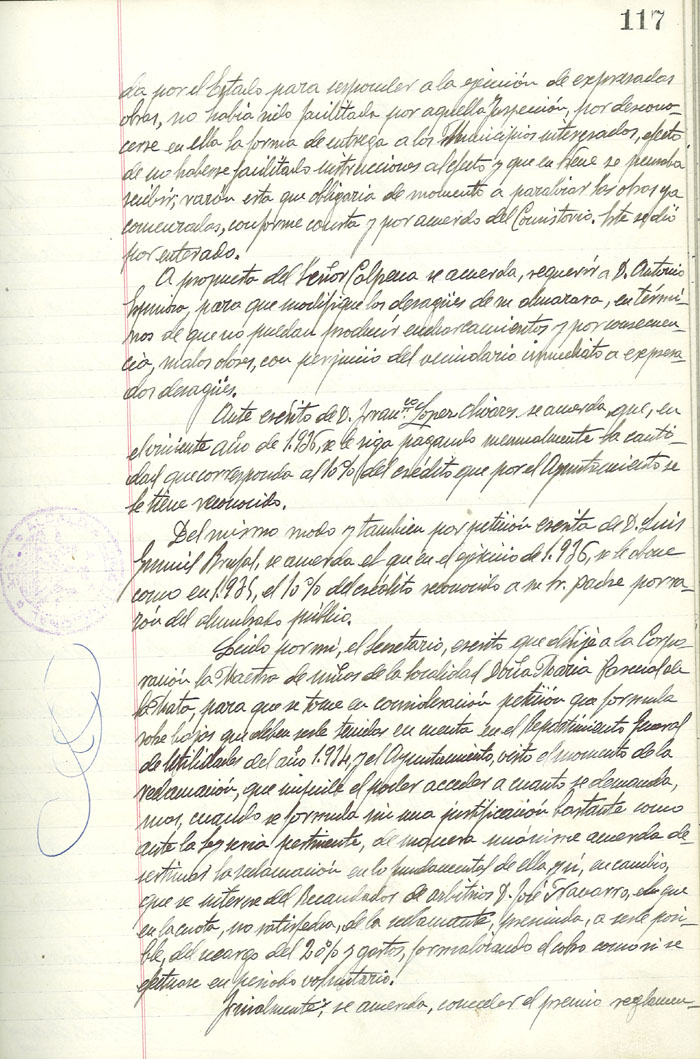 117
da por el Estado para responder a la ejecución de expresadas
obras, no había sido facilitada por aquella Inspección, por descono-
cerse en ella la forma de entrega a los Municipios interesados, efecto
de no haberse facilitado instrucciones al efecto y que en breve se
recibir, razón esta que obligaria de momento a paralizar las obras ya
comenzadas, conforme consta y por acuerdo del Consistorio. Este se dió
por enterado.
A propuesta del Señor Calpena se acuerda, requerir a D. Antonio
para que modifique los desagües de su almazara, en térmi-
nos de que no puedan producir encharcamientos y por consecuen-
cia, malos olores, con perjuicio del vecindario inmediato a expresa-
dos desagües.
Ante escrito de D. Franco Lopez Olivares se acuerda, que, en
el viniente año de 1.936, se le siga pagando mensualmente la canti-
dad que corresponda al 10% del crédito que por el Ayuntamiento se
le tiene reconocido.
Del mismo modo y tambien por petición escrita de D. Luis
Brufal, se acuerda el que en el ejercicio de 1.936, se le abone
como en 1.935, el 10% del crédito reconocido a su Sr. padre por ra-
zón del alumbrado público.
Leido por mi, el Secretario, escrito que dirije a la Corpo-
ración la Maestra de niños de la localidad Doña Maria Pascual de
para que se tome en consideración petición que formula
sobre bajas que deben serle tenidas en cuenta en el Repartimiento General
de Utilidades del año 1.934, y el Ayuntamiento, visto el momento de la
reclamación, que impide el poder acceder a cuanto se demanda,
mas, cuando se formula sin una justificación bastante como
ante la Ley seria pertinente, de manera unánime acuerda de-
sestimar la reclamación en lo fundamental de ella y si, en cambio,
que se interese del Recaudador de arbitrios D. José Navarro, de que
en la cuota, no satisfecha, de la reclamante, prescinda, a serle posi-
ble, del recargo del 20% y gastos, formalizando el cobro como si se
efectuase en periodo voluntario.
Finalmente, se acuerda, conceder el premio reglamen-